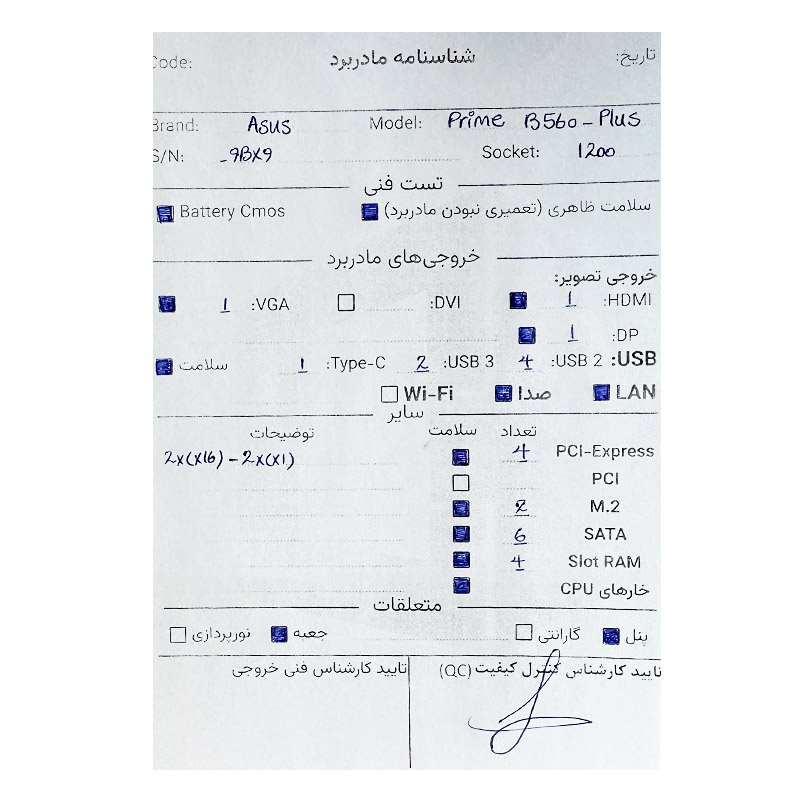 تاریخ: شناسنامه مادربرد Code:
Brand: Asus Model: Prime B560-Plus
S/N: -9BX9 Socket: 1200
تست فنی
سلامت ظاهری (تعمیری نبودن مادربرد) Battery Cmos
خروجی‌های مادربرد
خروجی تصویر:
HDMI: 1 DVI: VGA: 1
DP: 1
USB: USB 2: 4 USB 3: 2 Type-C: 1 سلامت
LAN صدا Wi-Fi
سایر
تعداد سلامت توضیحات
PCI-Express 4 2x(x16) - 2x(x1)
PCI
M.2 2
SATA 6
Slot RAM 4
خارهای CPU
متعلقات
پنل گارانتی جعبه نورپردازی
تایید کارشناس کنترل کیفیت (QC) تایید کارشناس فنی خروجی